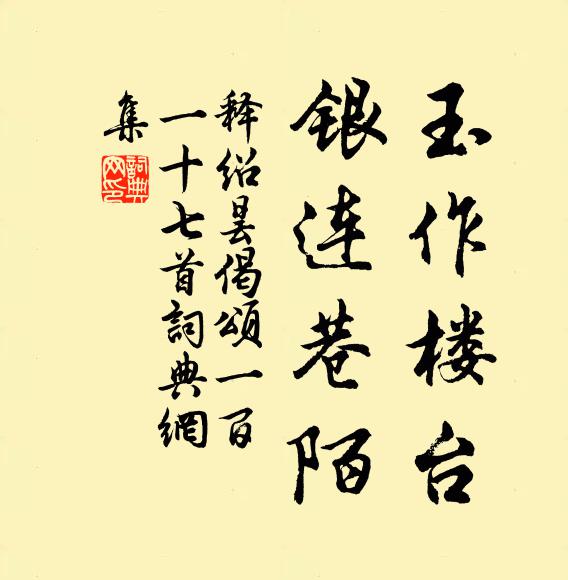 玉作楼台
银连巷陌
释绍昙偈颂一百
一十七首詞典網
集
詞典
网印